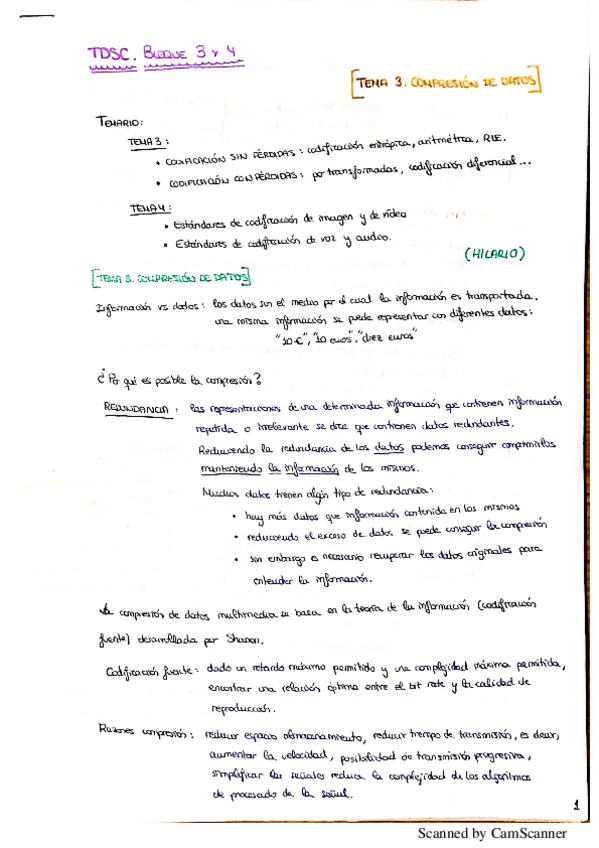 TDSC. BLOQUE 3 Y 4
[TEMA 3. COMPRESIÓN DE DATOS]
TEMARIO:
TEMA 3:
• CODIFICACIÓN SIN PÉRDIDAS: codificación entrópica, aritmética, RLE.
• CODIFICACIÓN CON PÉRDIDAS: por transformadas, codificación diferencial...
TEMA 4:
• Estándares de codificación de imagen y de vídeo
• Estándares de codificación de voz y audio.
(HILARIO)
[TEMA 3. COMPRESIÓN DE DATOS]
Información vs datos: los datos son el medio por el cual la información es transportada.
una misma información se puede representar con diferentes datos:
"10 €", "10 euros", "diez euros"
¿Por qué es posible la compresión?
REDUNDANCIA: las representaciones de una determinada información que contienen información
repetida o irrelevante se dice que contienen datos redundantes.
Reduciendo la redundancia de los datos podemos conseguir comprimirlos
manteniendo la información de los mismos.
Muchos datos tienen algún tipo de redundancia:
• hay más datos que información contenida en los mismos
• reduciendo el exceso de datos se puede conseguir la compresión
• sin embargo es necesario recuperar los datos originales para
entender la información.
La compresión de datos multimedia se basa en la teoría de la información (codificación
fuente) desarrollada por Shanon.
Codificación fuente: dado un retardo máximo permitido y una complejidad máxima permitida,
encontrar una relación óptima entre el bit rate y la calidad de
reproducción.
Razones compresión: reducir espacio almacenamiento, reducir tiempo de transmisión, es decir,
aumentar la velocidad, posibilidad de transmisión progresiva,
simplificar las señales reduce la complejidad de los algoritmos
de procesado de la señal.
1
Scanned by CamScanner